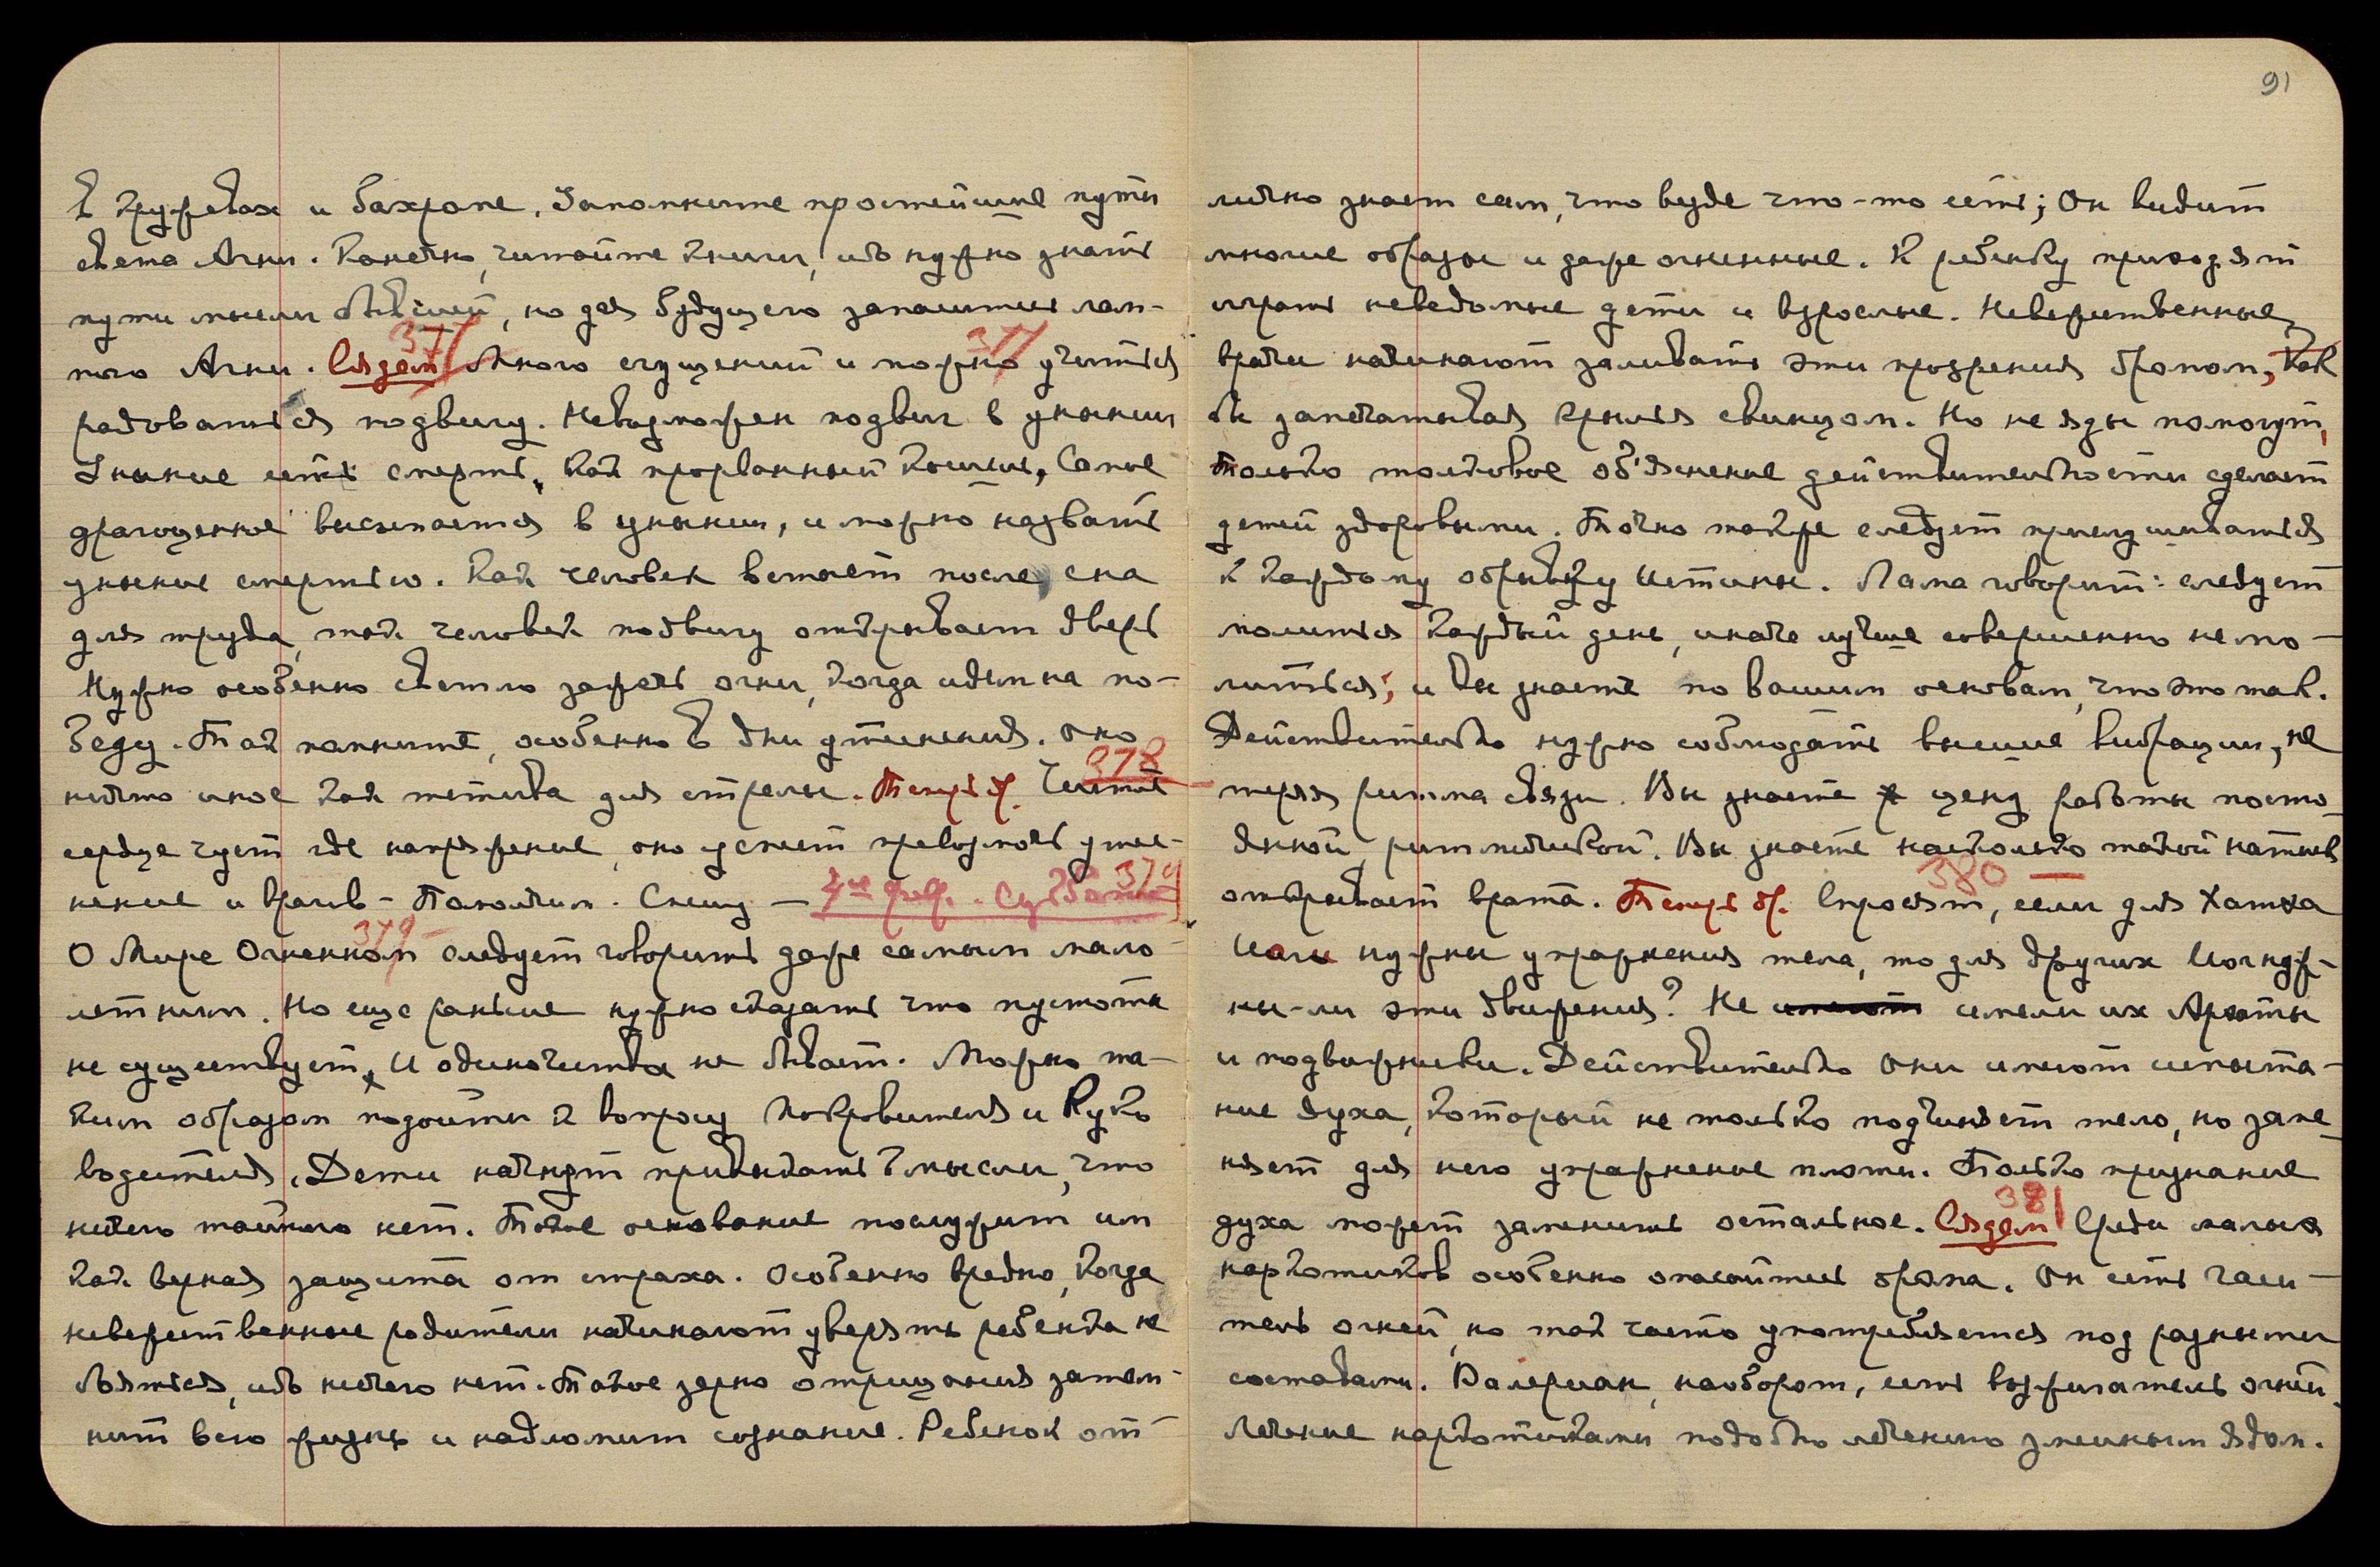 в кружевах и бахроме. Запомните простейшие пути
света Агни. Конечно, читайте книги, ибо нужно знать
пути мысли бывшей, но для будущего запаситесь лам-
пою Агни. 377 377 Сядем Много сгущений и можно учиться
радоваться подвигу. Невозможен подвиг в унынии
Уныние есть смерть, как прорванный кошель. Самое
драгоценное высыпается в унынии, и можно назвать
уныние смертью. Как человек встает после сна
для труда, так человек подвигу открывает дверь
Нужно особенно светло зажечь огни, когда идем на по-
беду. Так помните, особенно в дни утеснения. Оно
ничто иное как тетива для стрелы. 378 Чистое
сердце чует где напряжение, оно успеет превозмочь утес-
нение и врагов - Поможем. Спешу — 379
379 О Мире Огненном следует говорить даже самым мало-
летним. Но еще раньше нужно сказать что пустоты
не существует, и одиночества не бывает. Можно та-
ким образом подойти к вопросу Покровителя и Руко
водителя. Дети начнут привыкать к мысли, что
ничего тайного нет. Такое основание послужит им
как верная защита от страха. Особенно вредно, когда
невежественные родители начинают уверять ребенка не
бояться, ибо ничего нет. Такое зерно отрицания затем-
нит всю жизнь и надломит сознание. Ребенок от-
91
лично знает сам, что всюде что-то есть; он видит
многие образы и даже огненные. К ребенку приходят
играть неведомые дети и взрослые. Невежественные
врачи начинают заливать эти прозрения бромом, как
бы запечатывая крылья свинцом. Но не яды помогут,
только толковое объяснение действительности сделает
детей здоровыми. Точно также следует прислушиваться
к каждому обрывку Истины. Лама говорит: следует
молиться каждый день, иначе лучше совершенно не мо-
литься; и Вы знаете по вашим основам, что это так.
Действительно нужно соблюдать высшие вибрации, не
теряя ритма связи. Вы знаете цену работы посто
янной, ритмической. Вы знаете насколько такой натиск
открывает врата. 380 Спросят, если для Хатха
Йоги нужны упражнения тела, то для других Йог нуж-
ны-ли эти движения? Не имели их Архаты
и подвижники. Действительно они имеют испыта-
ние духа, который не только подчиняет тело, но заме
няет для него упражнение плоти. Только признание
духа может заменить остальное. 381 Сядем Среди малых
наркотиков особенно опасайтесь брома. Он есть гаси-
тель огней, но так часто употребляется под разными
составами. Валериан, наоборот, есть возжигатель огней
Лечение наркотиками подобно лечению змеиным ядом.